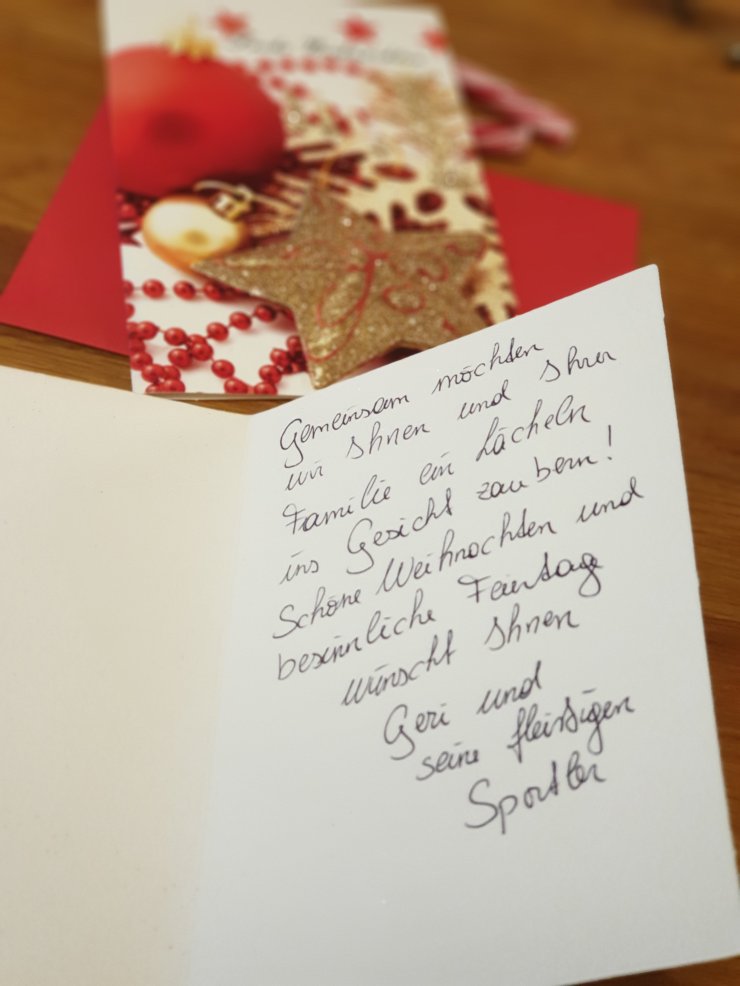 Gemeinsam möchten
wir Ihnen und Ihrer
Familie ein Lächeln
ins Gesicht zaubern!
Schöne Weihnachten und
besinnliche Feiertage
wünscht Ihnen
Geri und
seine fleißigen
Sportler